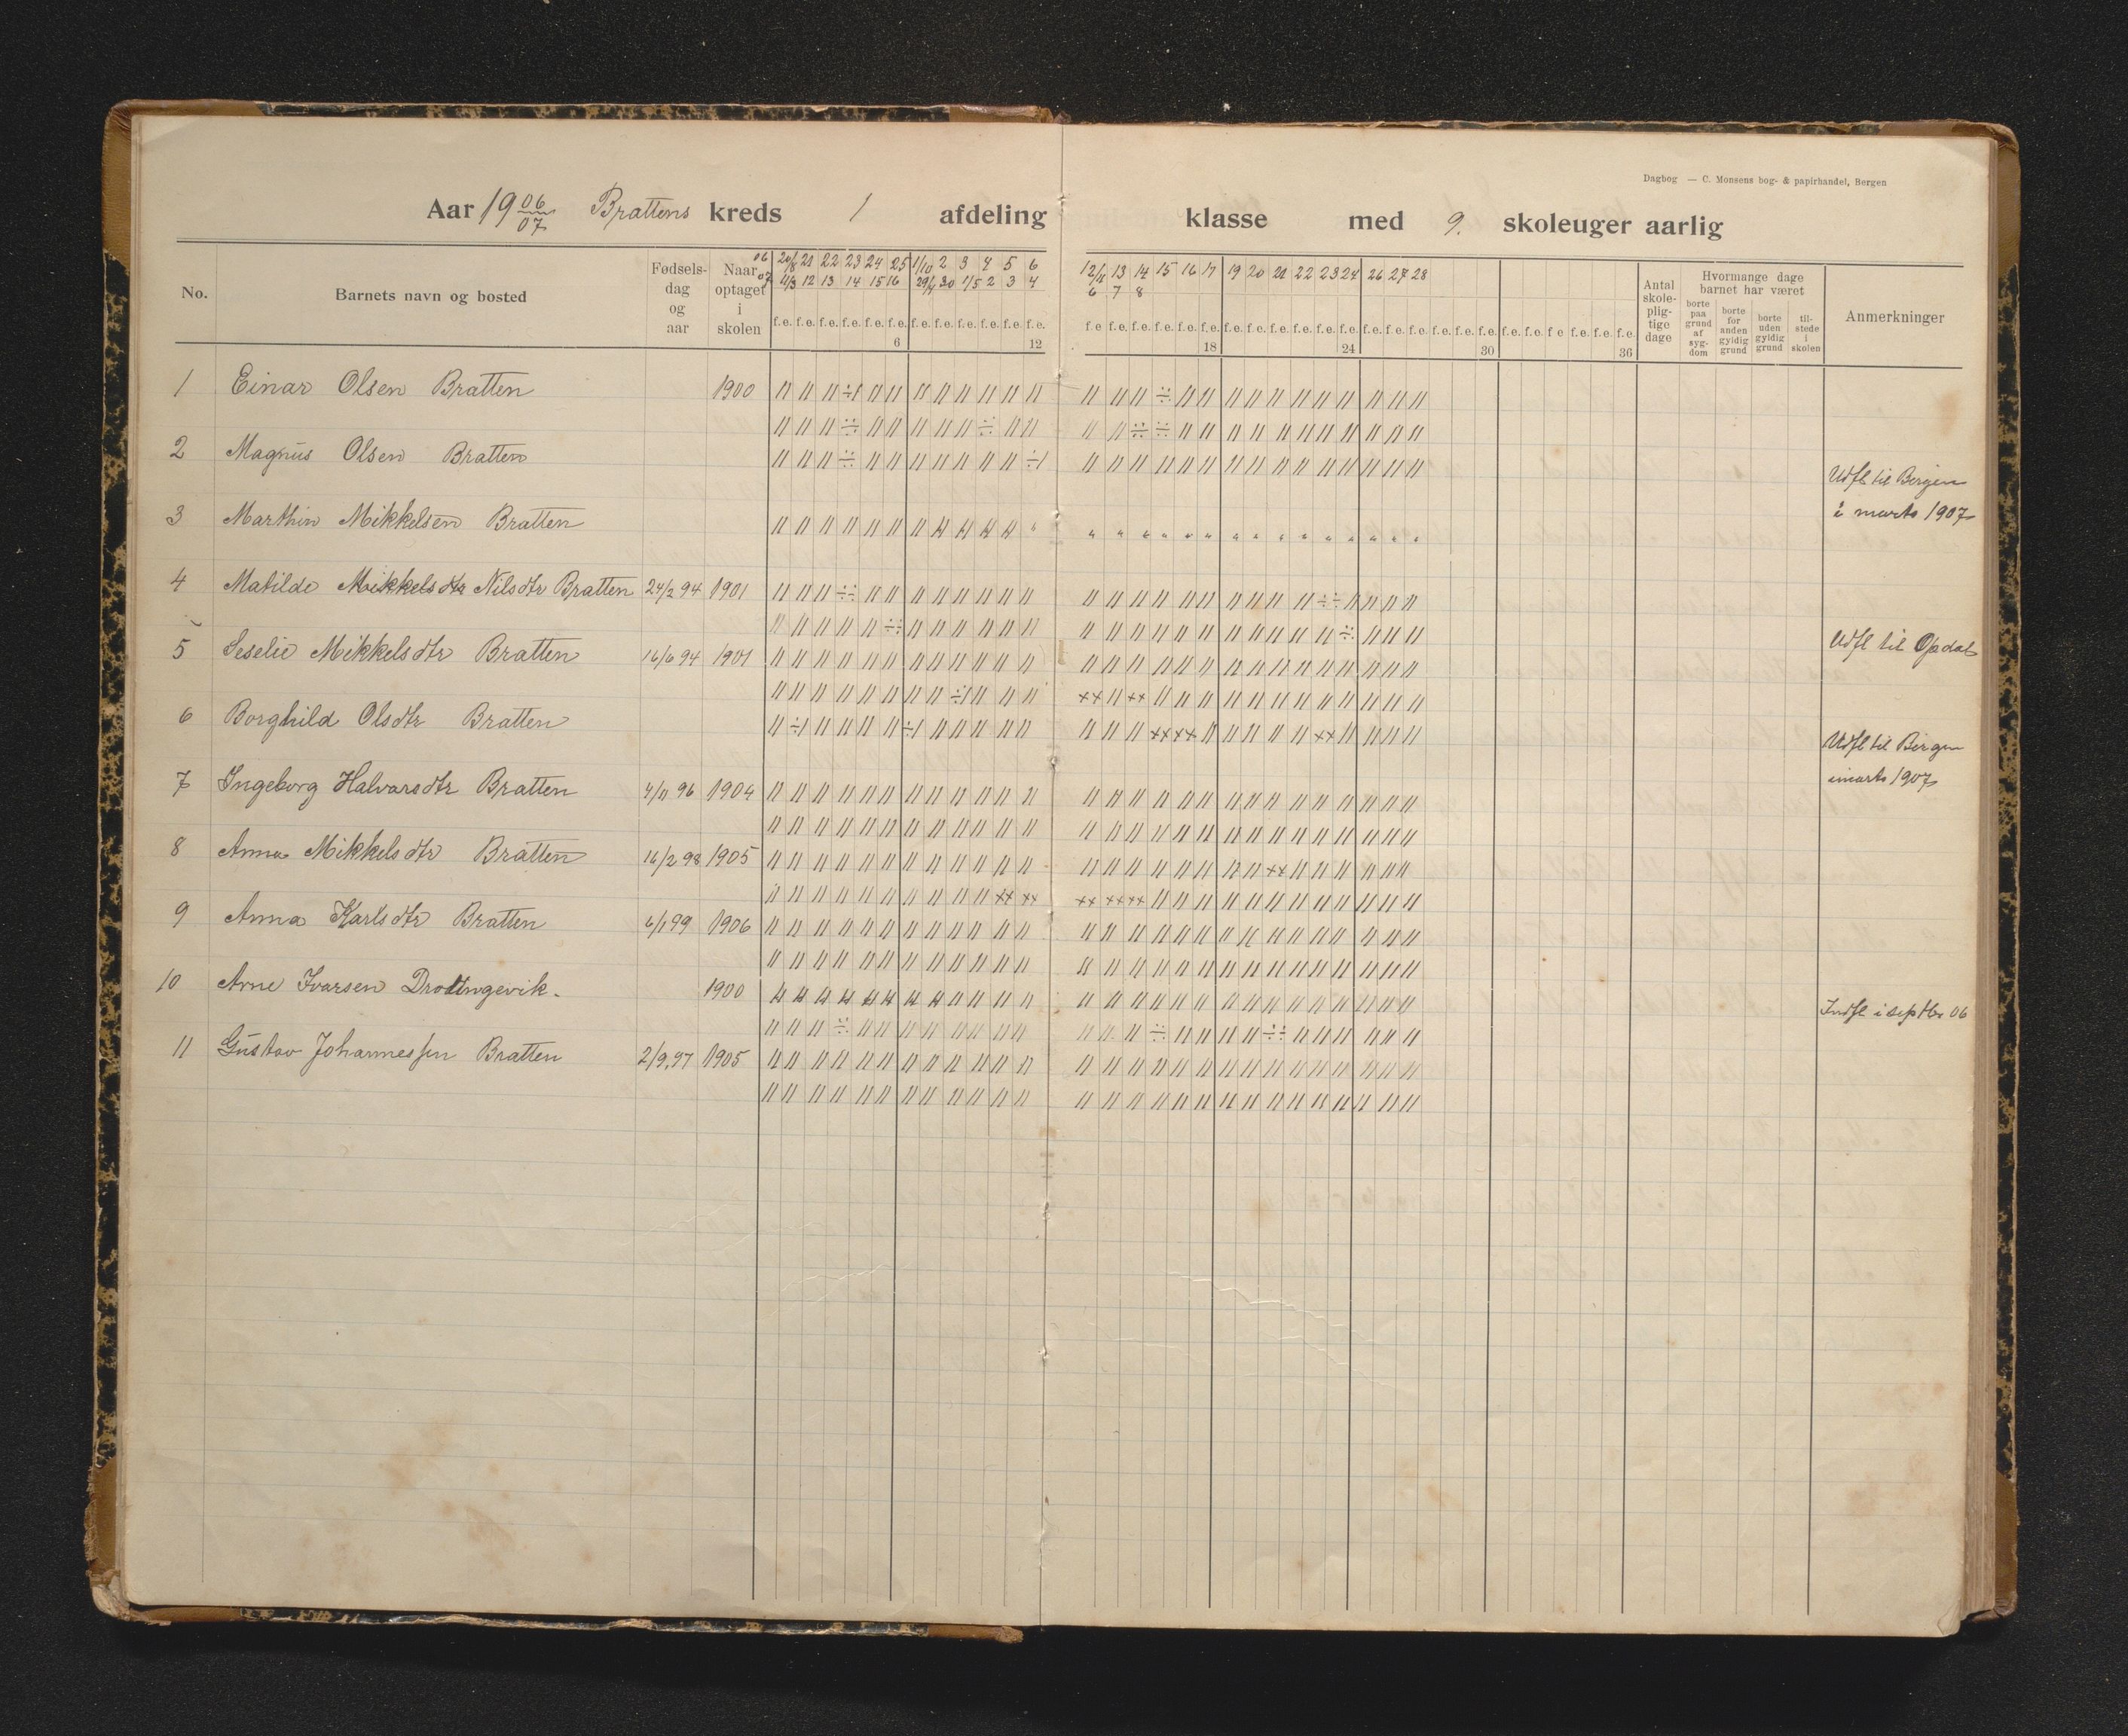 Dagbog — C. Monsens bog- & papirhandel, Bergen
Aar 19 06/07 Brattens kreds 1 afdeling klasse med 9. skoleuger aarlig
No. Barnets navn og bosted Fødsels- dag og aar Naar optaget i skolen Antal skole- plig- tige dage Hvormange dage barnet har været Anmerkninger
borte paa grund af syg- dom borte for anden gyldig grund borte uden gyldig grund til- stede i skolen
06 20/8 21 22 23 24 25 1/10 2 3 4 5 6 12/11 13 14 15 16 17 19 20 21 22 23 24 26 27 28
07 11/3 12 13 14 15 16 29/4 30 1/5 2 3 4 6 7 8
f.e. f.e. f.e. f.e. f.e. f.e. f.e. f.e. f.e. f.e. f.e. f.e. f.e f.e. f.e. f.e. f.e. f.e. f.e. f.e. f.e. f.e. f.e. f.e. f.e. f.e. f.e. f.e. f.e. f.e. f.e. f.e. f e f.e. f.e. f.e.
6 12 18 24 30 36
1 Einar Olsen Bratten 1900
2 Magnus Olsen Bratten
Udfl til Bergen
i marts 1907
3 Marthin Mikkelsen Bratten
4 Matilde Mikkelsdtr Nilsdtr Bratten 24/2 94 1901
5 Seselie Mikkelsdtr Bratten 16/6 94 1901 Udfl til Opdal
6 Borghild Olsdtr Bratten
Udfl til Bergen
i marts 1907
7 Ingeborg Halvarsdtr Bratten 4/11 96 1904
8 Anna Mikkelsdtr Bratten 16/2 98 1905
9 Anna Karlsdtr Bratten 6/1 99 1906
10 Arne Ivarsen Drottingevik. 1900 Indfl i septbr 06
11 Gustav Johannessen Bratten 2/9.97 1905